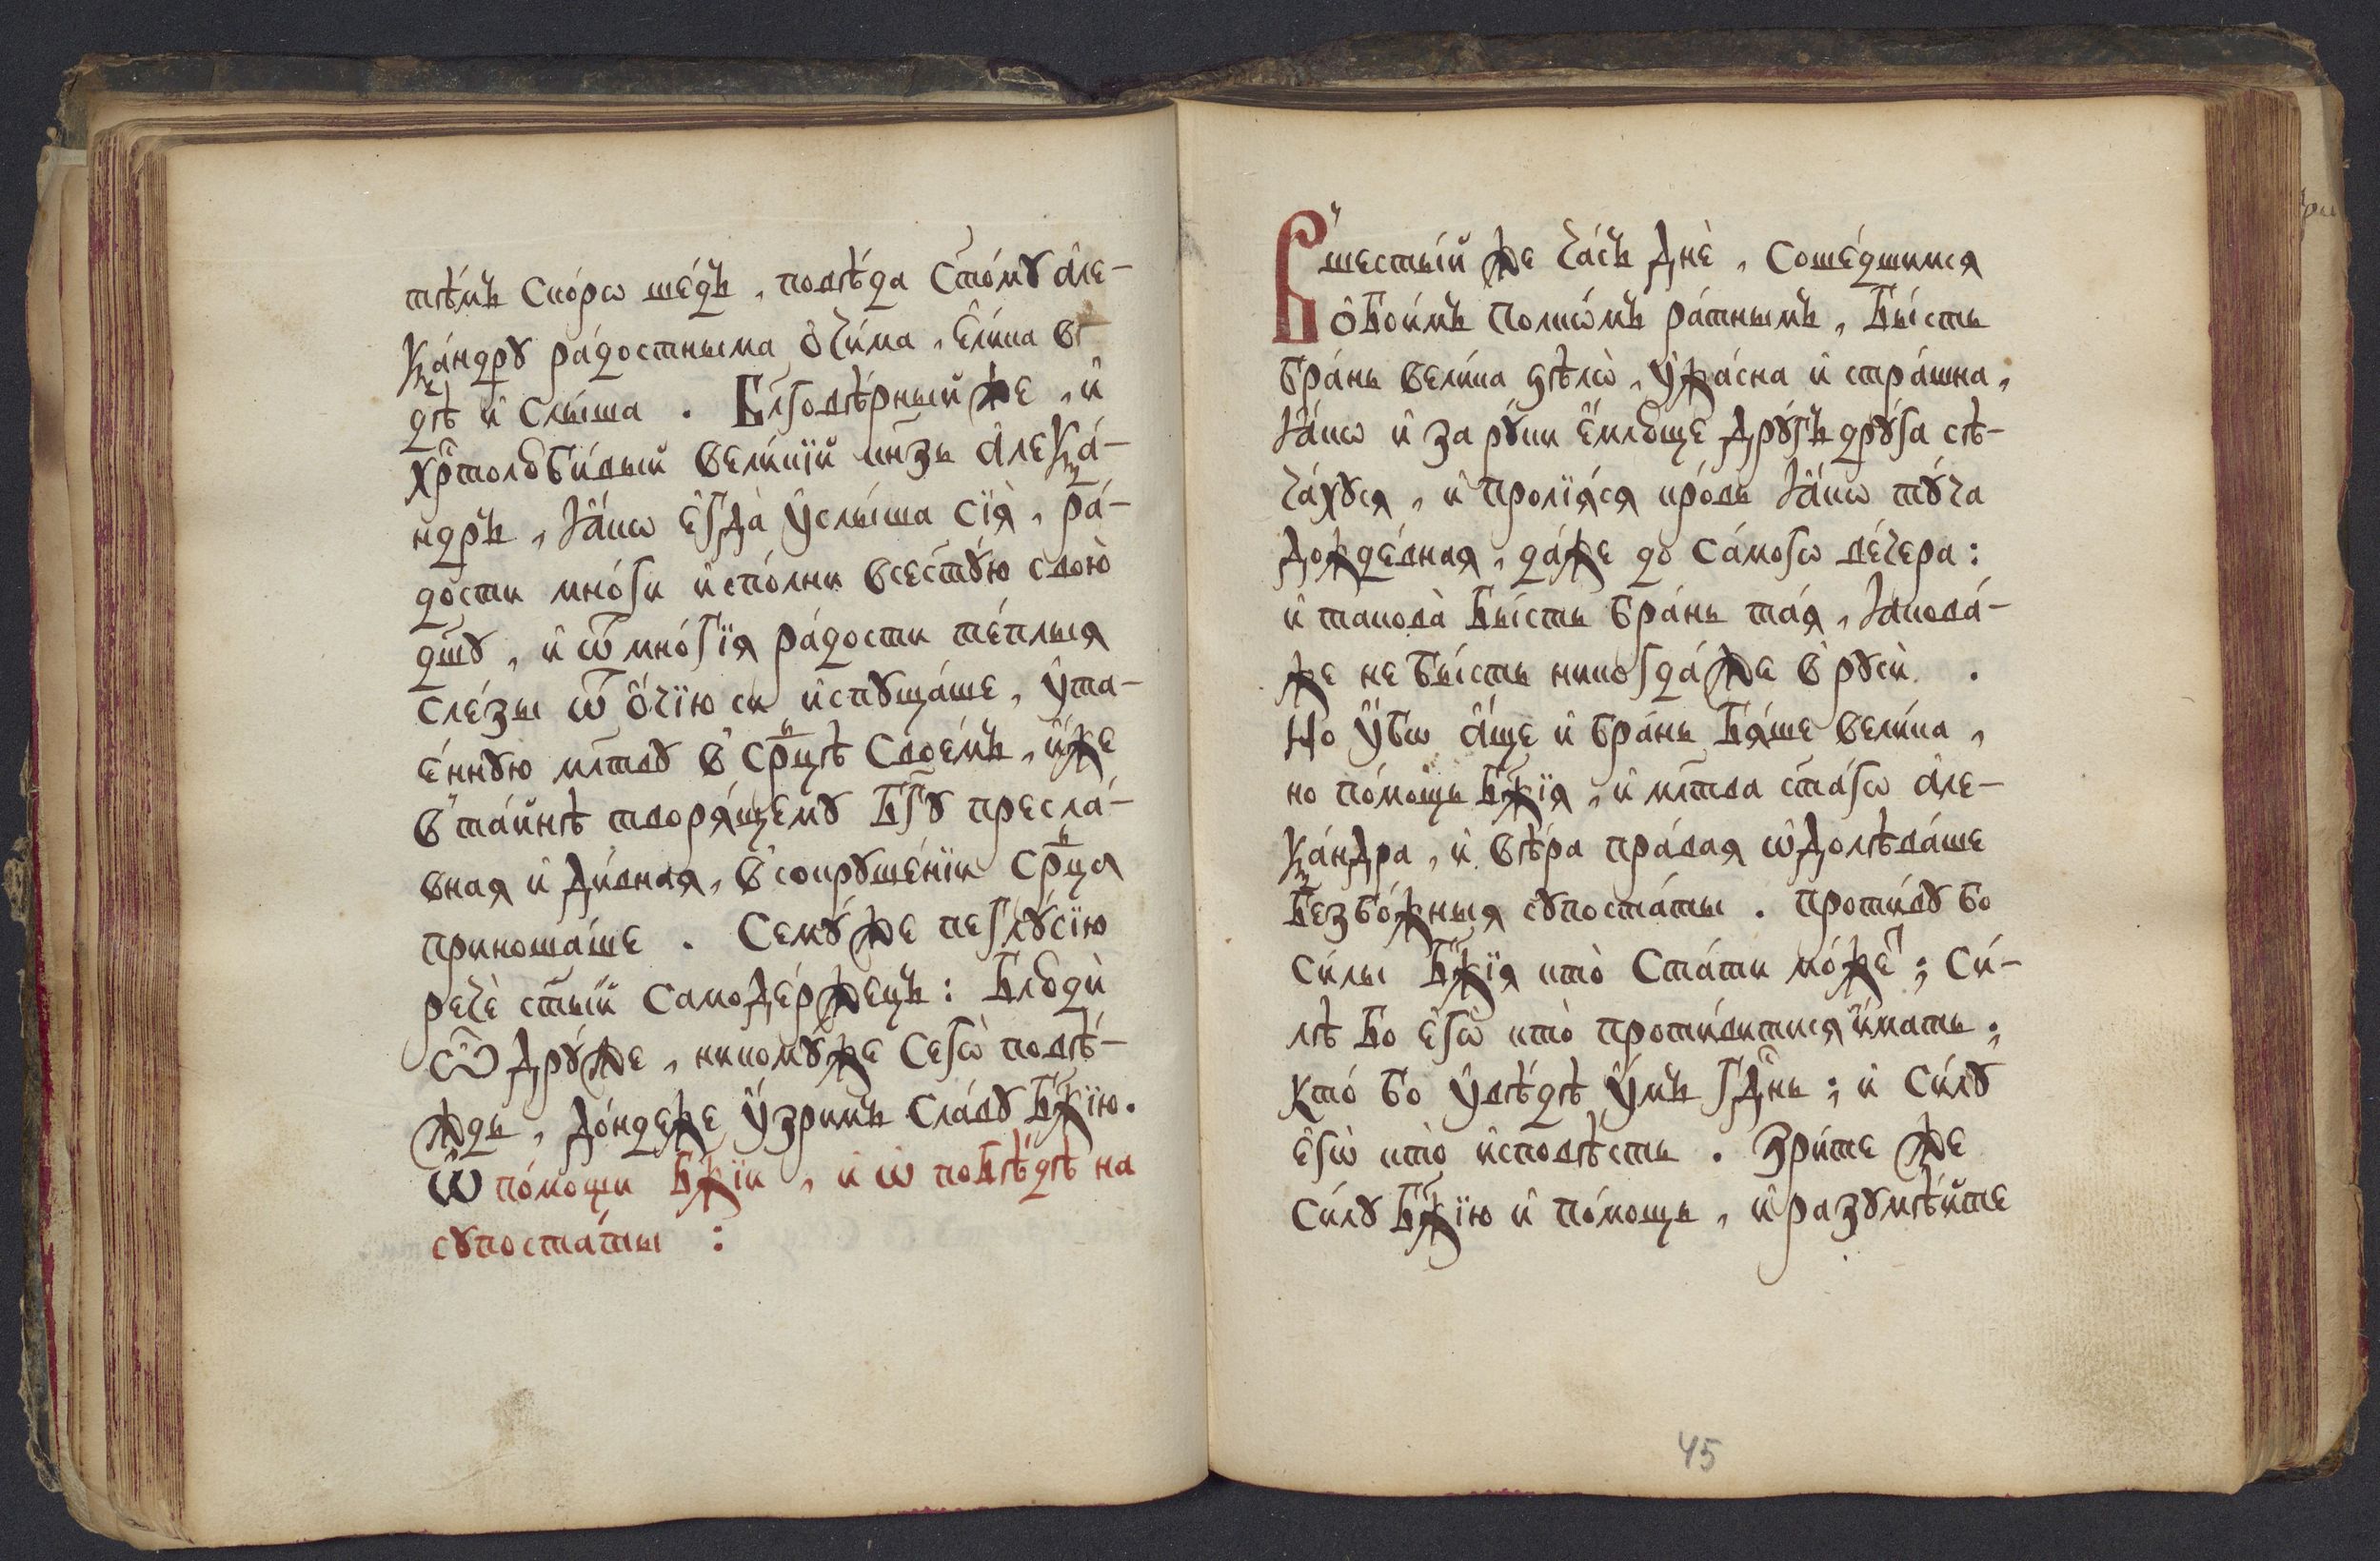 тѣ́мъ ско́рѡ ше́дъ, повѣ́да с҃то́мꙋ а҆ле-
ѯа́ндрꙋ ра́достныма ѻ҆чи́ма, є҆ли́ка ви́-
дѣ и҆ слы́ша. Бл҃говѣ́рный же, и҆
хр҃толюби́вый вели́кїй кн҃зь а҆леѯа́-
ндръ, ꙗ҆́кѡ є҆гда̀ ᲂу҆слы́ша сїѧ̀, ра́-
дости мно́ги и҆спо́лни всест҃ꙋ́ю свою̀
дш҃ꙋ, и҆ ѿ мно́гїѧ ра́дости те́плыѧ
сле́зы ѿ ѻ҆́чїю си и҆спꙋща́ше, ᲂу҆та-
е́ннꙋю мл҃твꙋ в̾ ср҃цѣ свое́мъ, и҆́же
в̾ та́йнѣ творѧ́щемꙋ бг҃ꙋ пресла́-
внаѧ и҆ ди́внаѧ, в̾ сокрꙋше́нїи ср҃ца
приноша́ше. Семꙋ́ же пелгꙋ́сїю
речѐ ст҃ы́й самоде́ржецъ: Блюдѝ
ѽ дрꙋ́же, никомꙋ́же сегѡ̀ повѣ́-
ждь, до́ндеже ᲂу҆́зримъ сла́вꙋ бж҃їю.
Ѡ҆ по́мощи бж҃їи, и҆ ѡ҆ побѣ́дѣ на
сꙋпоста́ты:
В̾ шесты́й же ча́съ днѐ, соше́дшимсѧ
ѻ҆бои́мъ полкѡ́мъ ра́тнымъ, бы́сть
бра́нь вели́ка ѕѣлѡ̀, ᲂу҆жа́сна и҆ стра́шна,
ꙗ҆́кѡ и҆ за рꙋ́ки є҆́млюще дрꙋ́гъ дрꙋ́га сѣ-
ча́хꙋсѧ, и҆ пролїѧ́сѧ кро́вь ꙗ҆́кѡ тꙋ́ча
дожде́внаѧ, да́же до са́могѡ ве́чера:
и҆ такова̀ бы́сть бра́нь та́ѧ, ꙗ҆кова́-
же не бы́сть никогда́же в̾ рꙋсѝ.
Но ᲂу҆́бѡ а҆́ще и҆ бра́нь бѧ́ше вели́ка,
но по́мощь бж҃їѧ, и҆ мл҃тва ст҃а́гѡ а҆ле-
ѯа́ндра, и҆ вѣ́ра пра́ваѧ ѡ҆долѣва́ше
безбо́жныѧ сꙋпоста́ты. Проти́вꙋ бо
си́лы бж҃їѧ кто̀ ста́ти мо́жетъ; си́-
лѣ бо є҆гѡ̀ кто̀ проти́витисѧ и҆́мать;
кто́ бо ᲂу҆вѣ́дѣ ᲂу҆́мъ гд҃нь; и҆ си́лꙋ
є҆гѡ̀ кто̀ и҆сповѣ́сть. Зри́те же
си́лꙋ бж҃їю и҆ по́мощь, и҆ разꙋмѣ́йте
45